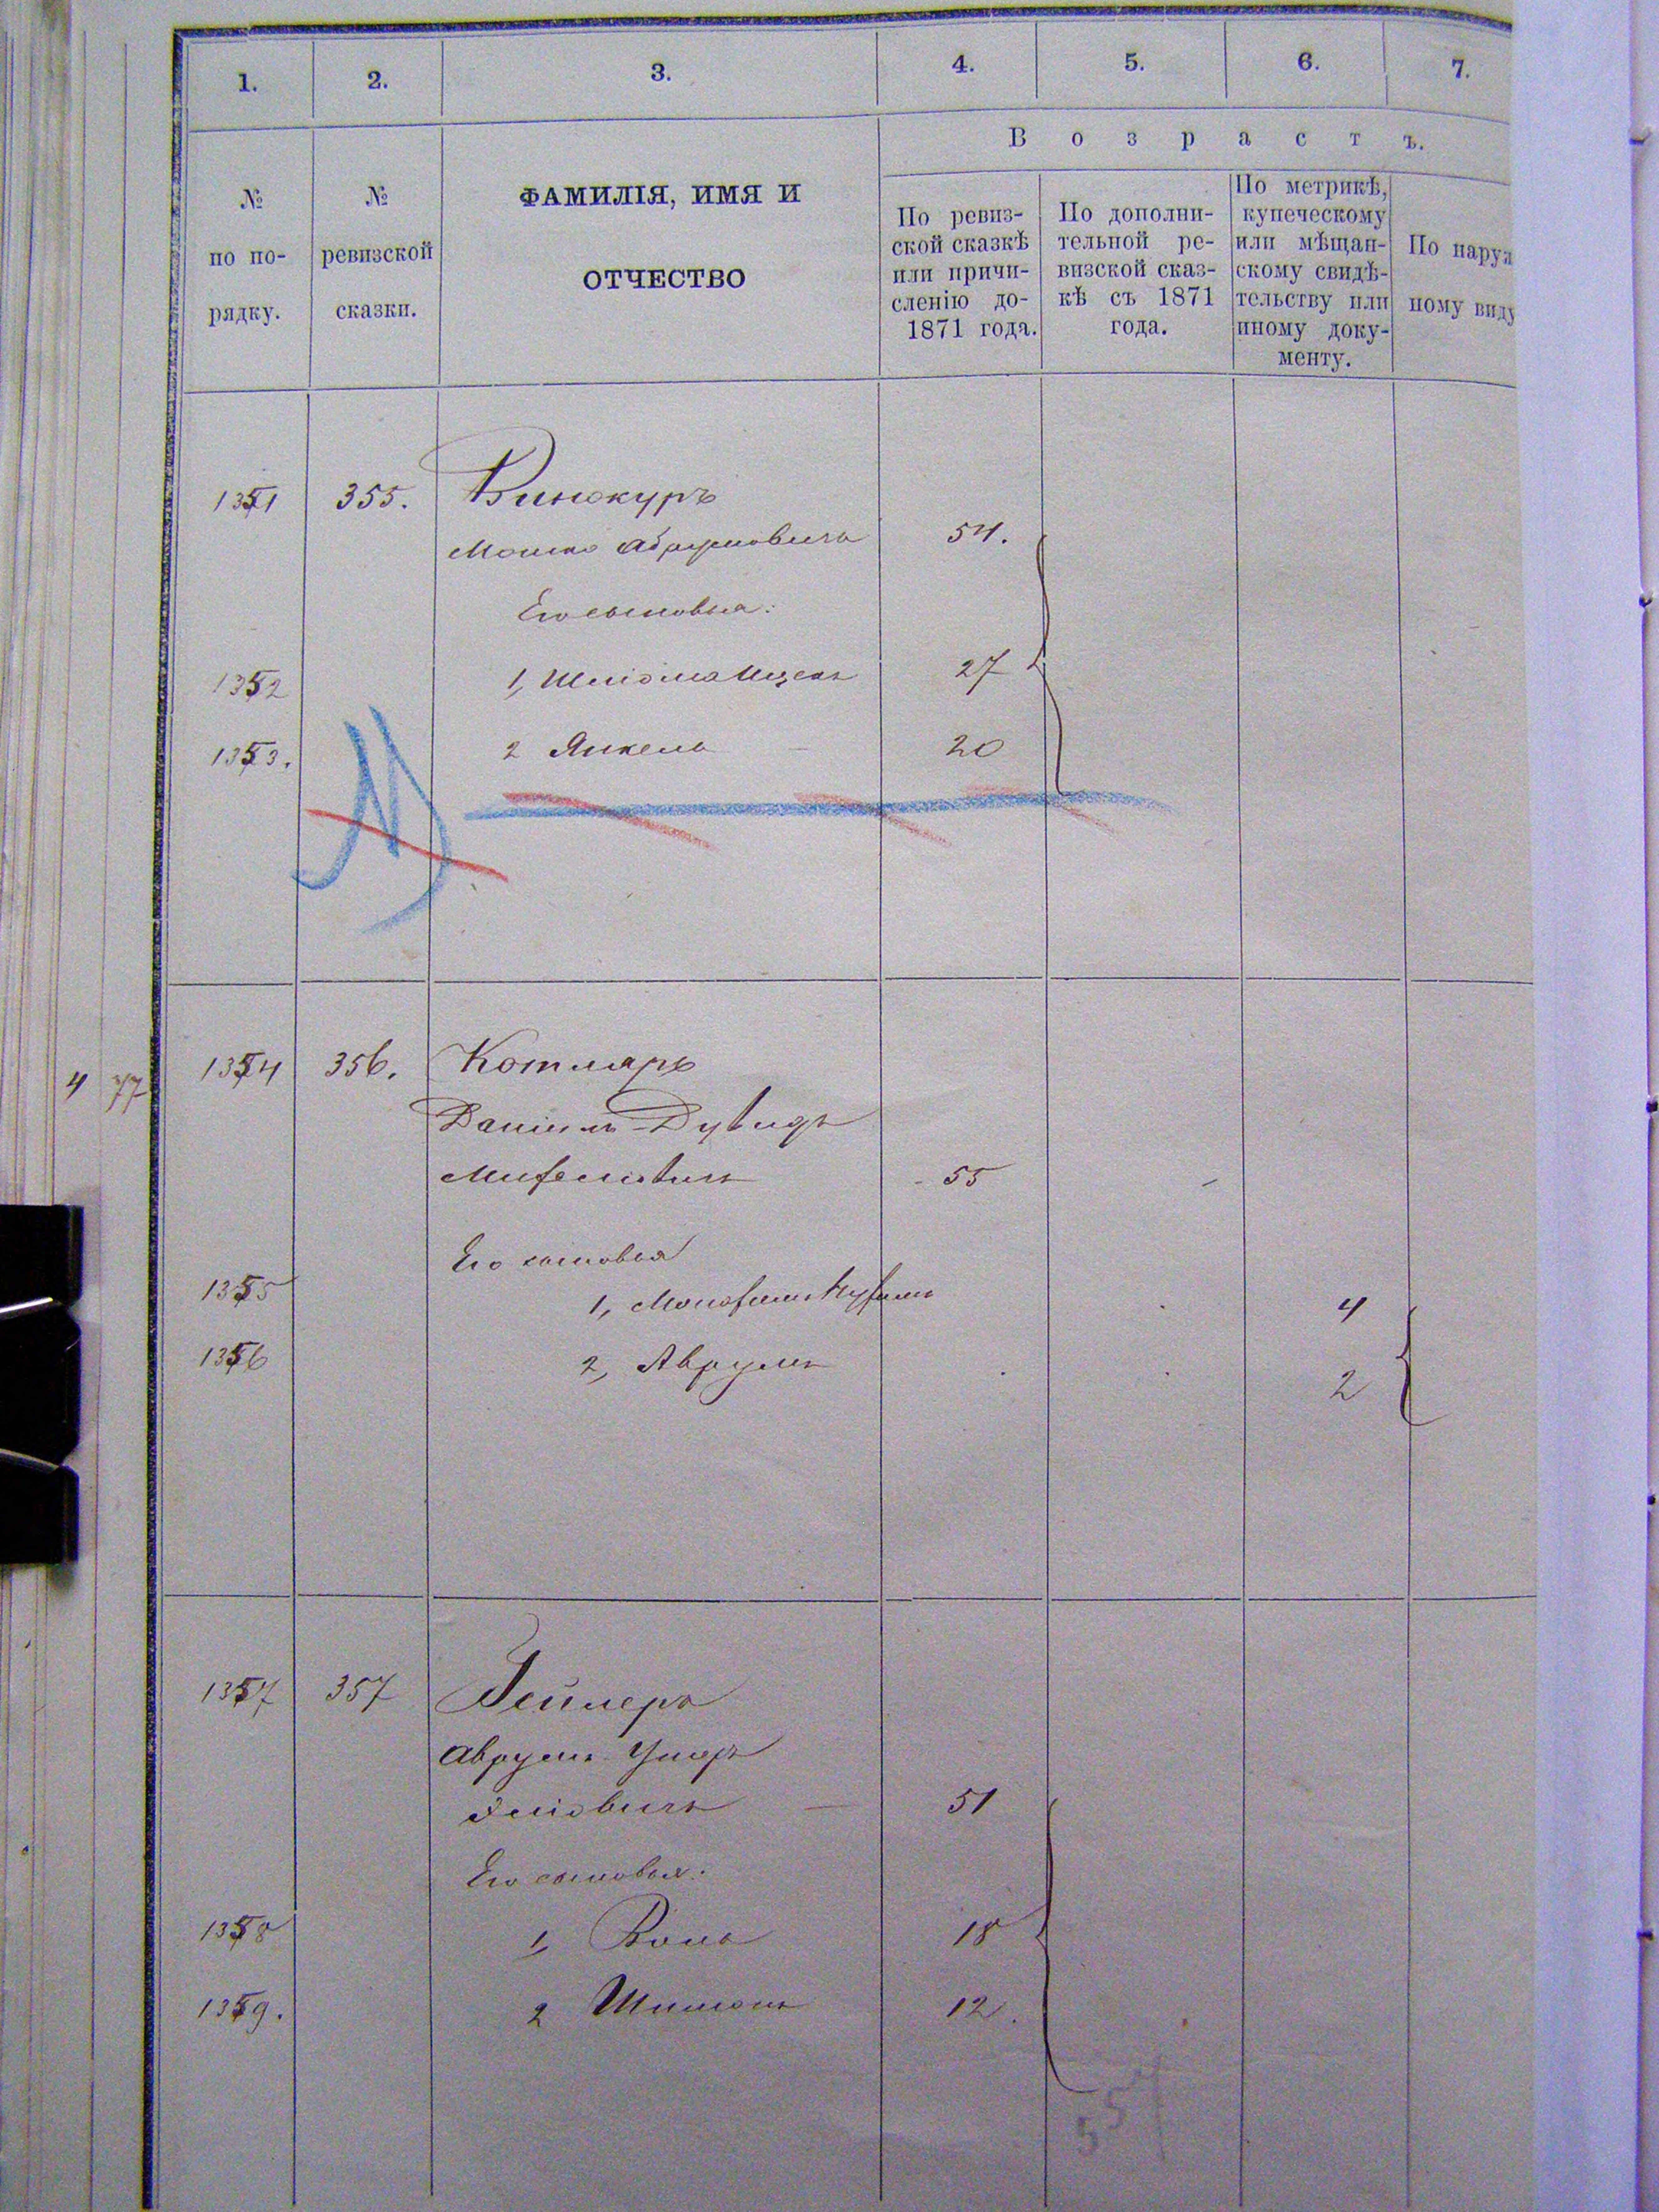 1. 2. 3. 4. 5. 6. 7.
В о з р а с т ъ.
№ по по- рядку.
№ ревизской сказки.
ФАМИЛІЯ, ИМЯ И
ОТЧЕСТВО
По ревиз-
ской сказкѣ
или причи-
сленію до-
1871 года.
По дополни-
тельной ре-
визской сказ-
кѣ съ 1871
года.
По метрикѣ,
купеческому
или мѣщан-
скому свидѣ-
тельству или
иному доку-
менту.
По наруж
ному виду
1351 355. Винокуръ
Мошко Абрумовичъ 54.
Его сыновья:
1352 1, Шліома Ицекъ 27
1353. 2 Янкель 20
4 77
1354 356. Котляръ
Даніилъ-Дувидъ
55
Его сыновья
1355 1, 4
1356 2, Аврумъ 2
1357 357 Гейлеръ
Аврумъ Ушеръ
51
Его сыновья:
1358 1, 18
1359. 2 Шимонъ 12.
557